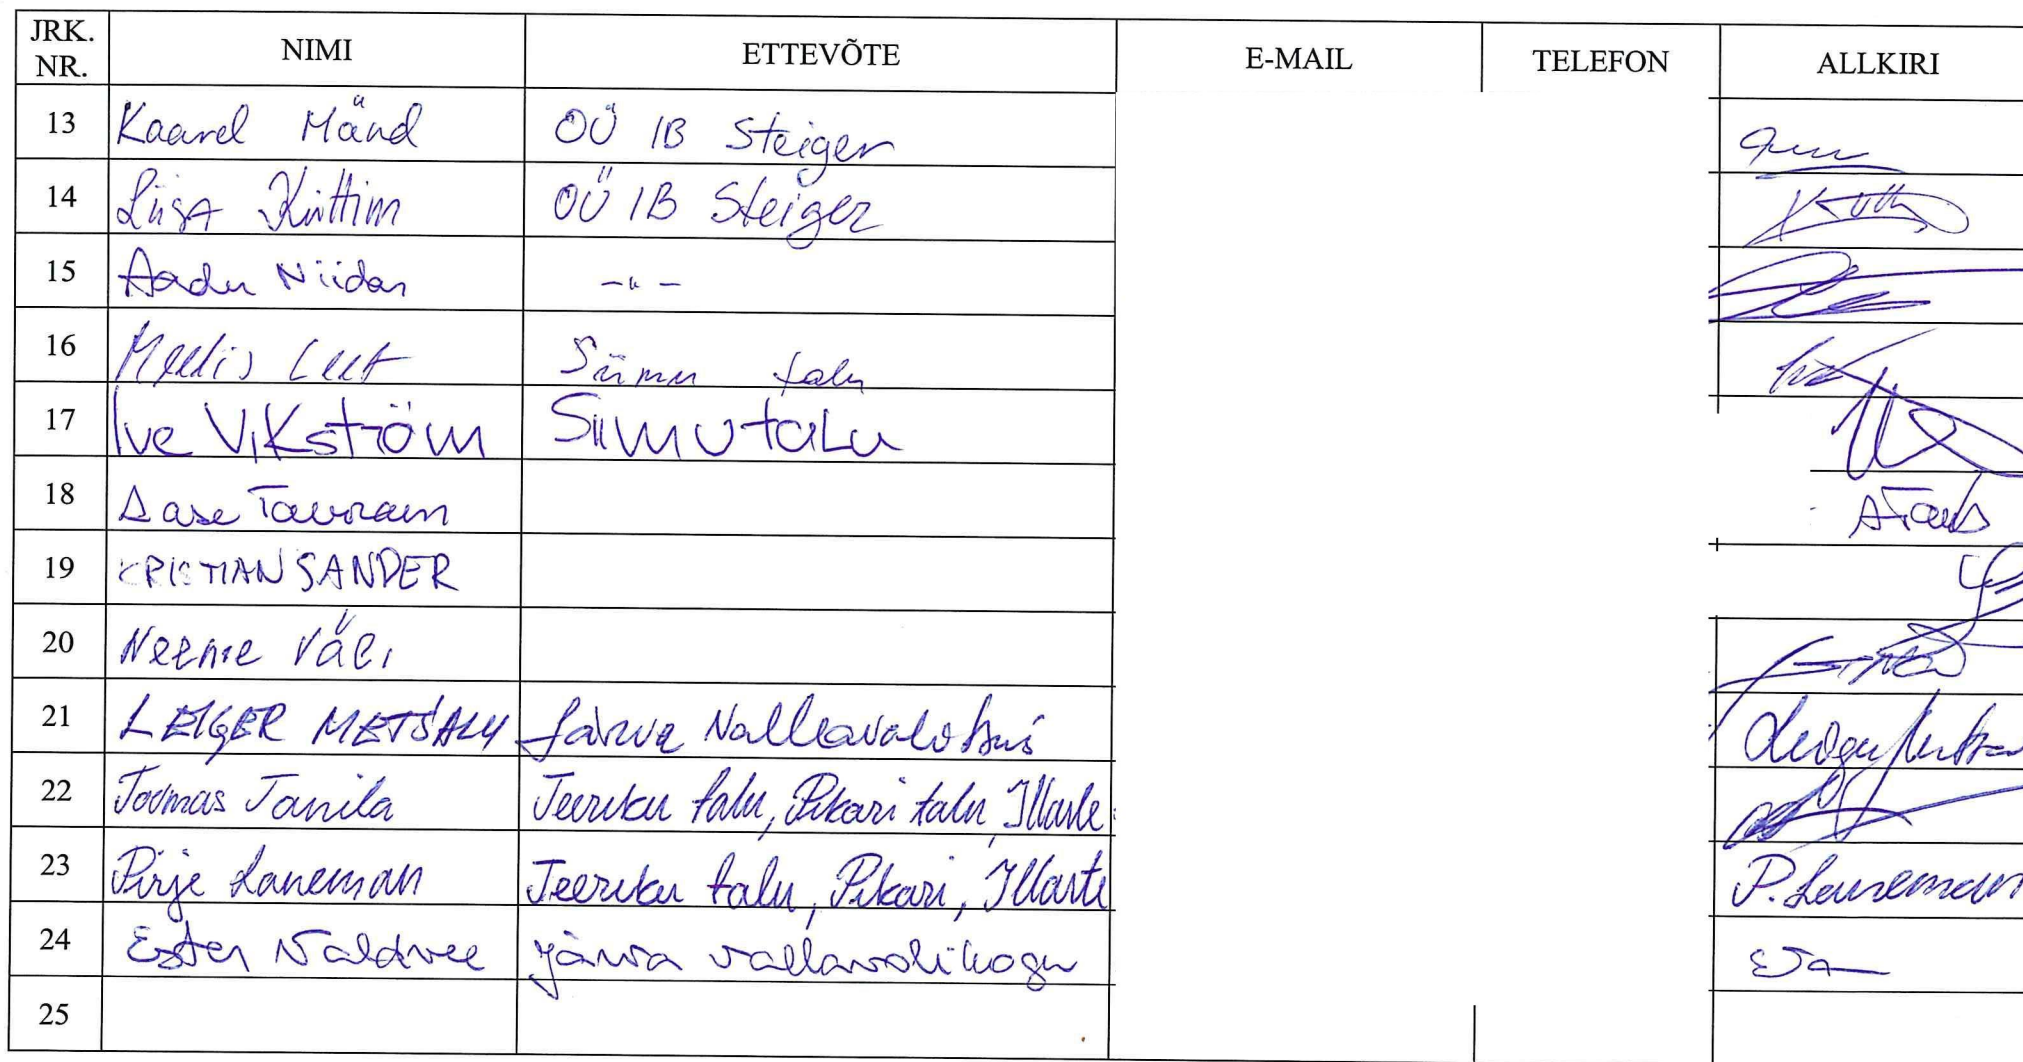 JRK. NR. NIMI ETTEVÕTE E-MAIL TELEFON ALLKIRI
13 Kaarel Mänd OÜ IB Steiger
14 Liisa Küttim OÜ IB Steiger
15 Aadu Niidas -"-
16 Meelis Leet Siimu talu
17 Ive Vikström Siimu talu
18 Aase Tavram
19 KRISTIAN SANDER
20 Neeme Väli
21 LEIGER METSALU Järva Vallavalitsus
22 Toomas Tanila Teeriku talu, Pikari talu, Illarte
23 Pirje Laneman Teeriku talu, Pikari, Illarte P. Laneman
24 Ester Valdvee Järva vallavolikogu
25